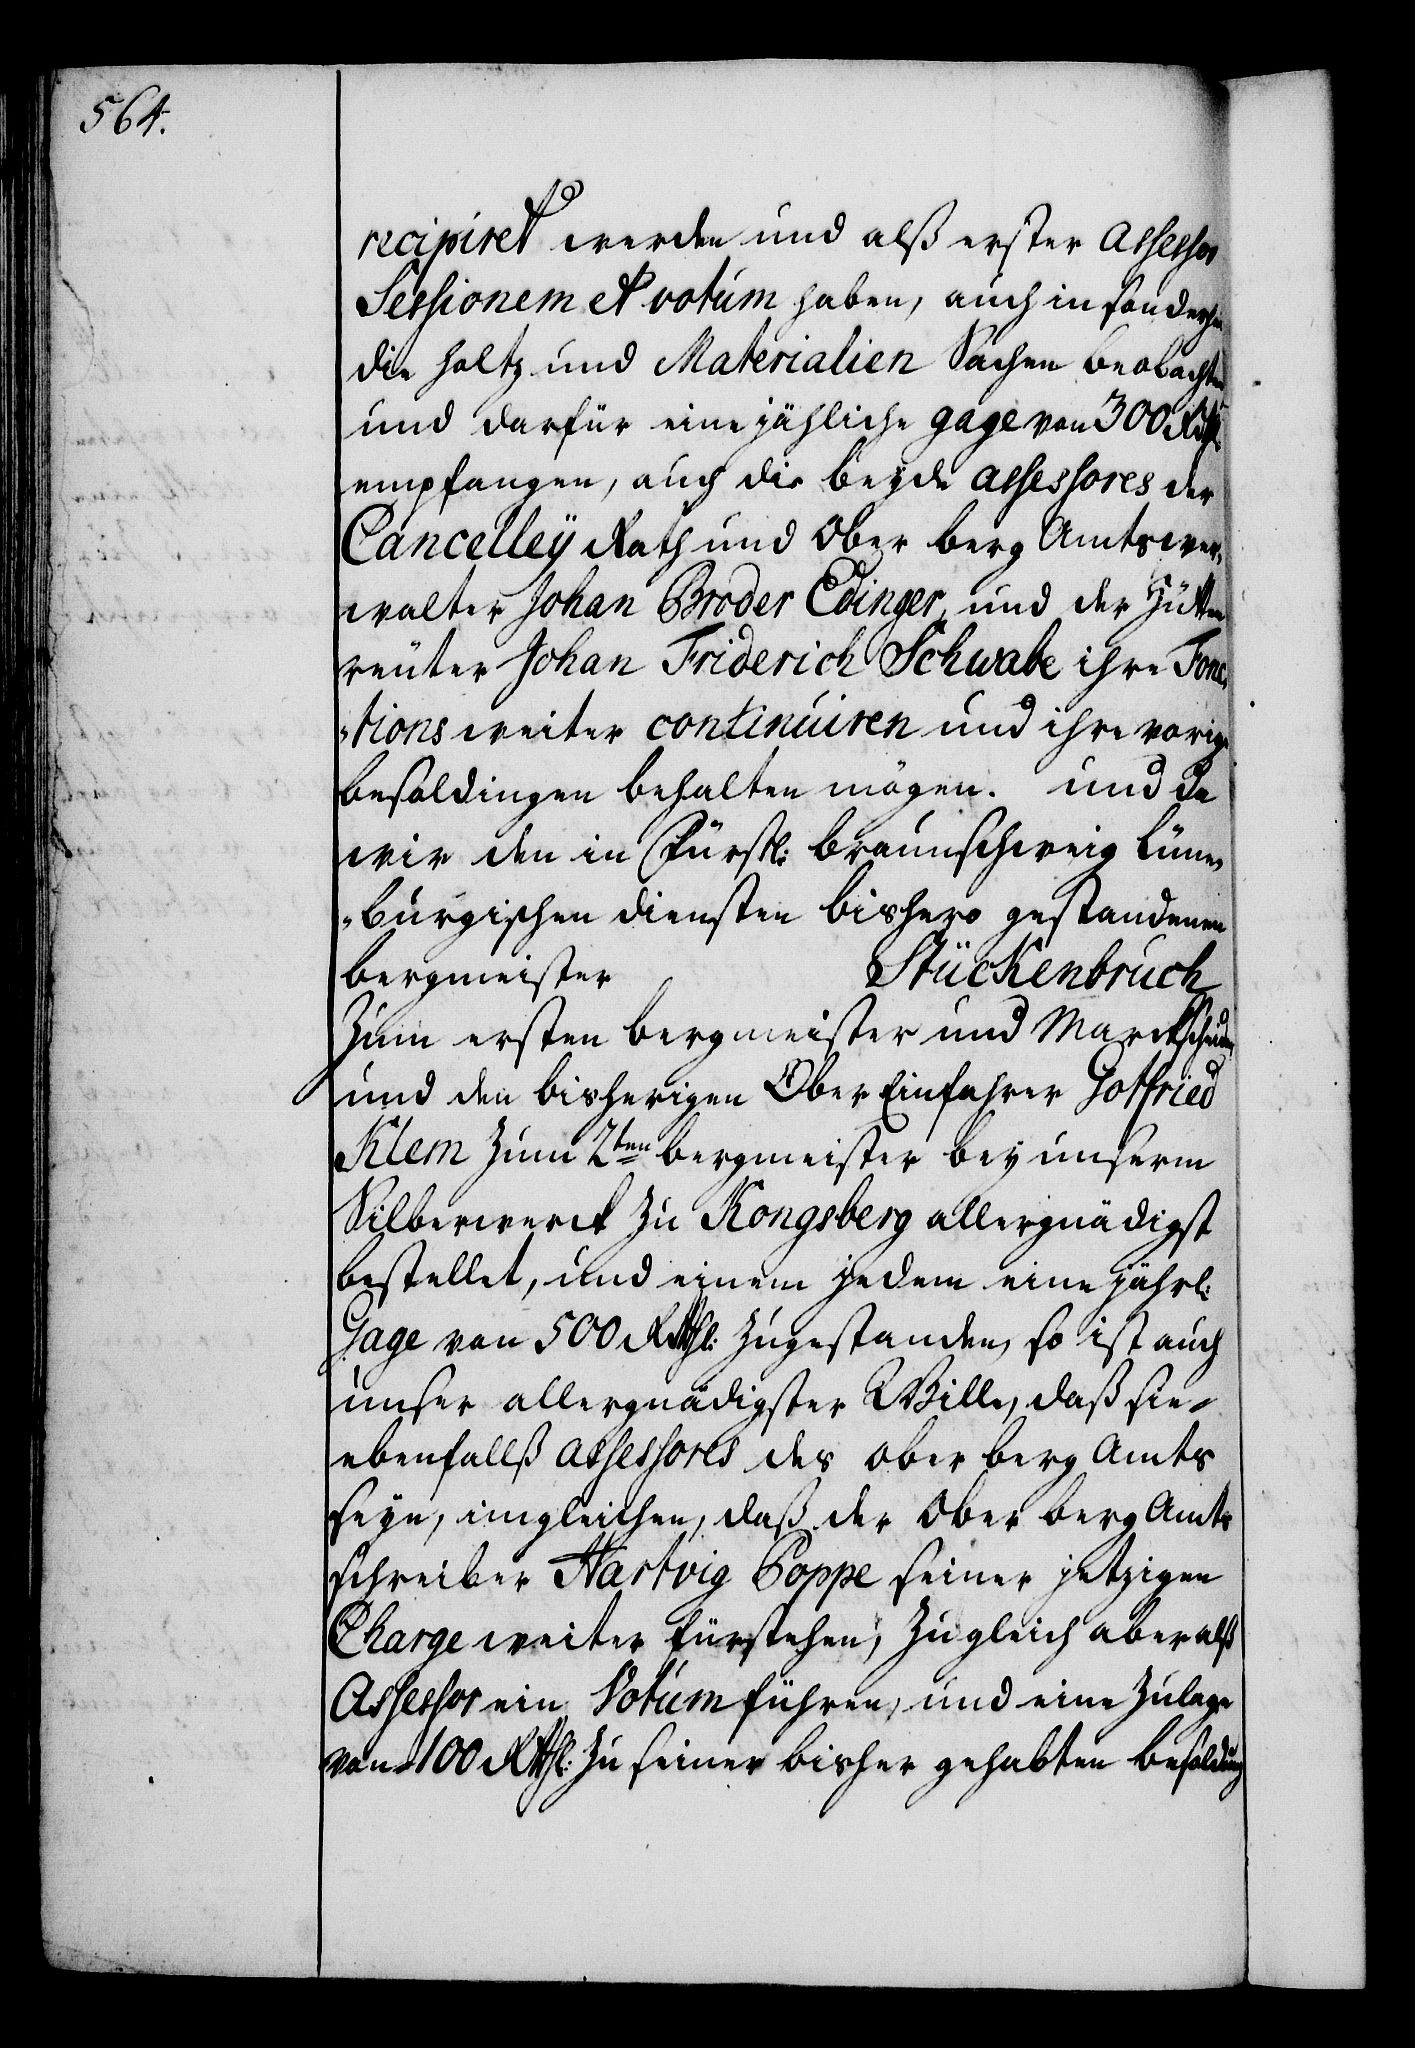 564.
recipiret werden und alß erster Assessor
Sessionem et votum haben, auch in sonderheit
die Holtz und Materialien Sachen beobachten
und darfür eine jähliche gage von 300 Rthl:
empfangen, auch die beyde assessores der
Cancelley Rath und Ober berg Amtsver,
walter Johan Broder Edinger, und der Hütten
reuter Johan Friderich Schwabe ihre Fonc,
,tions weiter continuiren und ihre vorige
besoldingen behalten mögen. und da
wir den in Fürstl: braunschweig Lüne,
,burgischen diensten bishero gestandenen
bergmeister Stückenbruch
Zum ersten bergmeister und Marckscheider
und den bisherigen Ober Einfahrer Gotfried
Klem Zum 2ten bergmeister bey unserm
Silberwerck Zu Kongsberg allergnädigst
bestellet, und einem jedem eine jährl:
Gage von 500 Rthl: Zugestanden, so ist auch
unser allergnädigster Wille, daß sie
ebenfallß assessores des ober berg Amts
seyn, imgleichen, daß der Ober berg Amts
schreiber Hartvig Poppe seiner jetzigen
Charge weiter fürstehen, Zugleich aber alß
Assessor ein Votum führen, und eine Zulage
von 100 Rthl: Zu seiner bisher gehabten besoldung